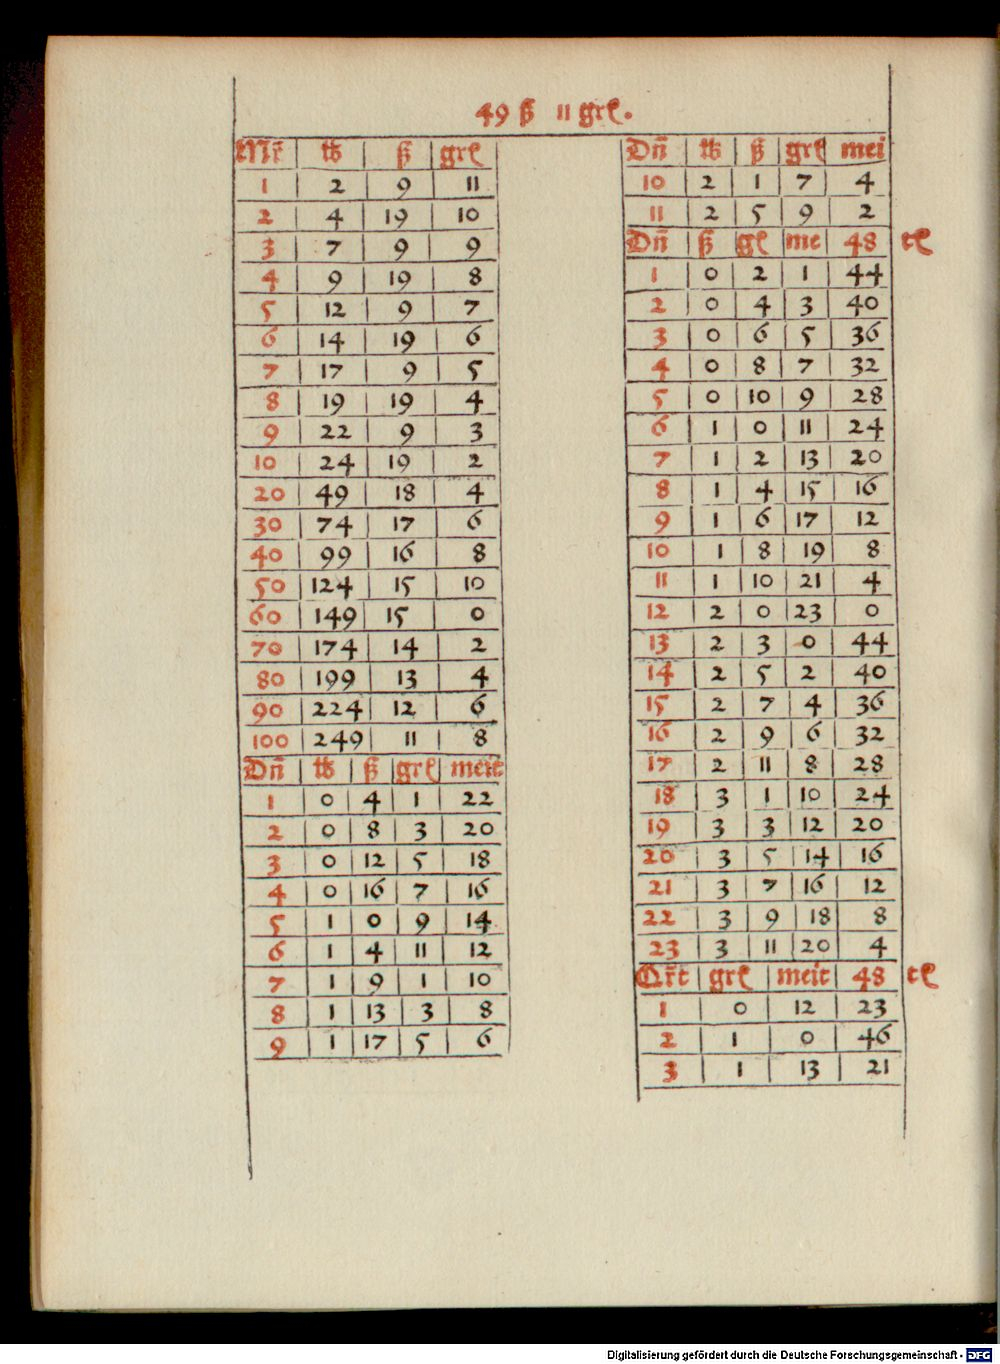 49 ß 11 grl.
Mr̄ | tb | ß | grl
1 | 2 | 9 | 11
2 | 4 | 19 | 10
3 | 7 | 9 | 9
4 | 9 | 19 | 8
5 | 12 | 9 | 7
6 | 14 | 19 | 6
7 | 17 | 9 | 5
8 | 19 | 19 | 4
9 | 22 | 9 | 3
10 | 24 | 19 | 2
20 | 49 | 18 | 4
30 | 74 | 17 | 6
40 | 99 | 16 | 8
50 | 124 | 15 | 10
60 | 149 | 15 | 0
70 | 174 | 14 | 2
80 | 199 | 13 | 4
90 | 224 | 12 | 6
100 | 249 | 11 | 8
Dn̄ | tb | ß | grl | meit
1 | 0 | 4 | 1 | 22
2 | 0 | 8 | 3 | 20
3 | 0 | 12 | 5 | 18
4 | 0 | 16 | 7 | 16
5 | 1 | 0 | 9 | 14
6 | 1 | 4 | 11 | 12
7 | 1 | 9 | 1 | 10
8 | 1 | 13 | 3 | 8
9 | 1 | 17 | 5 | 6
Dn̄ | tb | ß | grl | mei
10 | 2 | 1 | 7 | 4
11 | 2 | 5 | 9 | 2
Dn̄ | ß | gl | me | 48 tl
1 | 0 | 2 | 1 | 44
2 | 0 | 4 | 3 | 40
3 | 0 | 6 | 5 | 36
4 | 0 | 8 | 7 | 32
5 | 0 | 10 | 9 | 28
6 | 1 | 0 | 11 | 24
7 | 1 | 2 | 13 | 20
8 | 1 | 4 | 15 | 16
9 | 1 | 6 | 17 | 12
10 | 1 | 8 | 19 | 8
11 | 1 | 10 | 21 | 4
12 | 2 | 0 | 23 | 0
13 | 2 | 3 | 0 | 44
14 | 2 | 5 | 2 | 40
15 | 2 | 7 | 4 | 36
16 | 2 | 9 | 6 | 32
17 | 2 | 11 | 8 | 28
18 | 3 | 1 | 10 | 24
19 | 3 | 3 | 12 | 20
20 | 3 | 5 | 14 | 16
21 | 3 | 7 | 16 | 12
22 | 3 | 9 | 18 | 8
23 | 3 | 11 | 20 | 4
Qr̄t | grl | meit | 48 tl
1 | 0 | 12 | 23
2 | 1 | 0 | 46
3 | 1 | 13 | 21
Digitalisierung gefördert durch die Deutsche Forschungsgemeinschaft - DFG